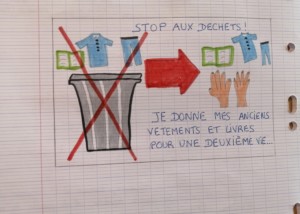 STOP AUX DECHETS !
JE DONNE MES ANCIENS
VETEMENTS ET LIVRES
POUR UNE DEUXIÈME VE...